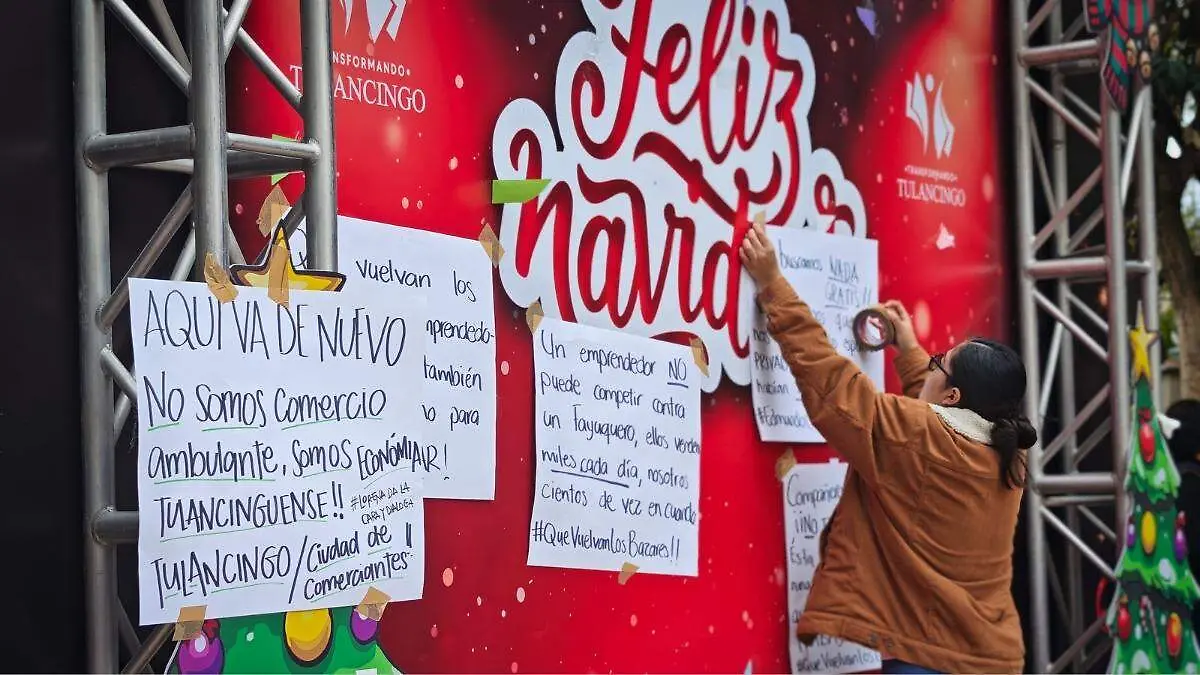 TRANSFORMANDO
TULANCINGO
Feliz
Navidad
TRANSFORMANDO
TULANCINGO
AQUI VA DE NUEVO
No somos comercio
ambulante, somos ECONOMIA!
TULANCINGUENSE!!
#LORENA DA LA
CARA Y DIALOGA
TULANCINGO/Ciudad de
Comerciantes"
vuelvan los
también
para
Un emprendedor NO
puede competir contra
un Fayuquero, ellos venden
miles cada día, nosotros
cientos de vez en cuando
#QueVuelvanLosBazares!!
buscamos NADA
GRATIS!!
¡¡NO
Está
#QueVuelvan